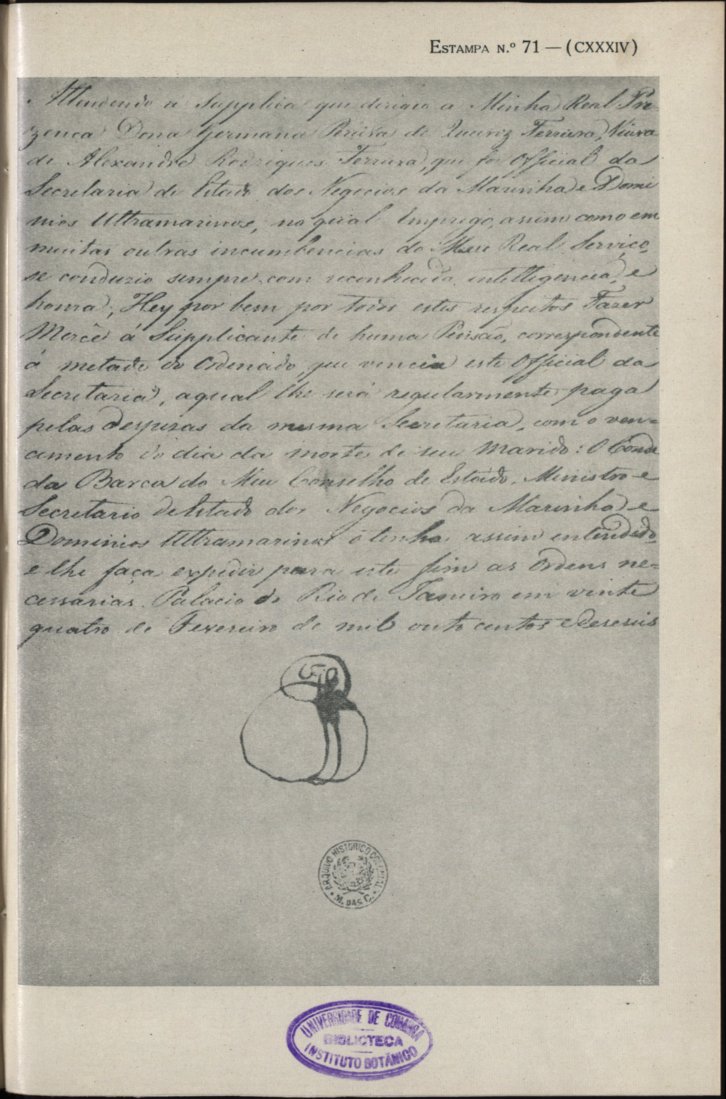 ESTAMPA N.º 71 — (CXXXIV)
Attendendo á Supplica que dirigio a Minha Real Pre=
zença Dona Germana Pereira de Queiroz Ferreira, Viuva
de Alexandre Rodrigues Ferreira, que foi Official da
Secretaria de Estado dos Negocios da Marinha e Domi
nios Ultramarinos, no qual Emprego, assim como em
muitas outras incumbencias do Meu Real Serviço,
se conduzio sempre com reconhecida intelligencia, e
honra; Hey por bem por todos estes respeitos Fazer
Mercê á Supplicante de huma Pensão, correspondente
á metade do Ordenado, que vencia este Official da
Secretaria, aqual lhe será regularmente paga
pelas despezas da mesma Secretaria, com o ven=
cimento do dia da morte de seu marido: O Conde
da Barca do Meu Conselho de Estado, Ministro e
Secretario de Estado dos Negocios da Marinha e
Dominios Ultramarinos o tenha assim entendido,
e lhe faça expedir para este fim as Ordens ne=
cessarias. Palacio do Rio de Janeiro em vinte
quatro de Fevereiro de mil oito centos e deseseis
ARQUIVO HISTÓRICO COLONIAL
M. DAS C.
UNIVERSIDADE DE COIMBRA
BIBLIOTECA
INSTITUTO BOTÂNICO